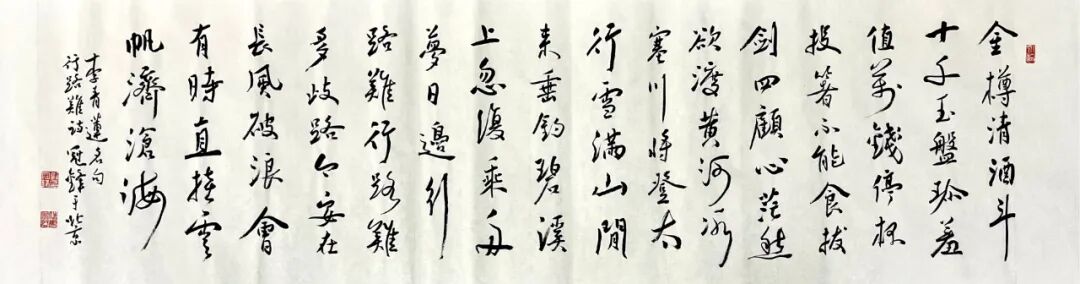 金樽清酒斗
十千玉盤珍羞
值萬錢停杯
投箸不能食拔
劍四顧心茫然
欲渡黃河冰
塞川將登太
行雪滿山閒
來垂釣碧溪
上忽復乘舟
夢日邊行
路難行路難
多歧路今安在
長風破浪會
有時直掛雲
帆濟滄海
李青蓮名句
行路難詩 冠 于北京